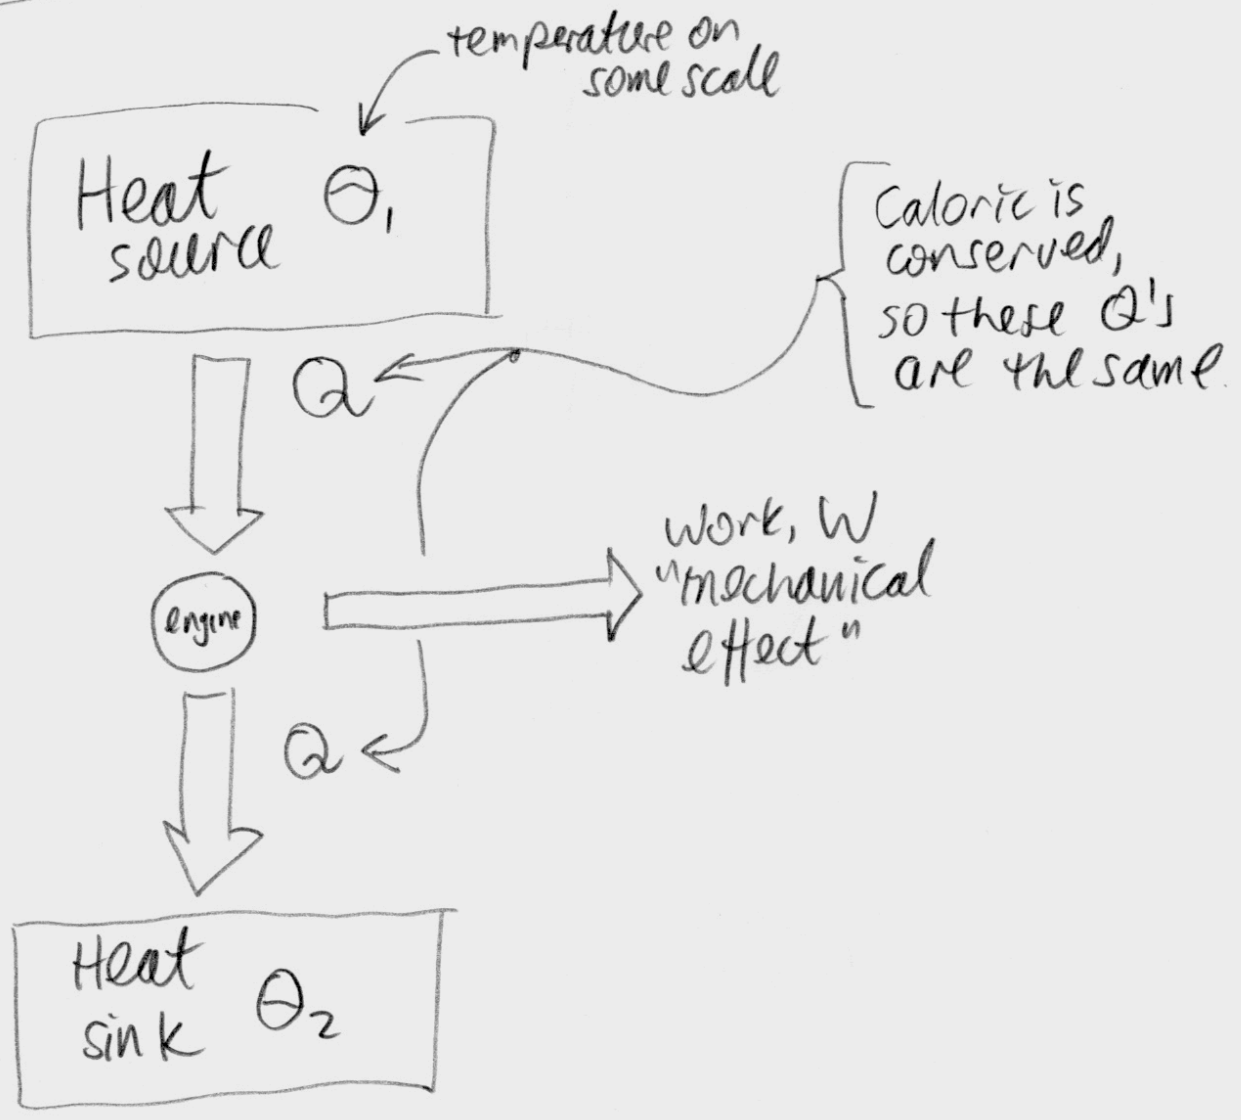 temperature on
some scale
Heat
source
Θ₁
Caloric is
conserved,
so these Q's
are the same.
Q
engine
Work, W
"mechanical
effect"
Q
Heat
sink
Θ₂